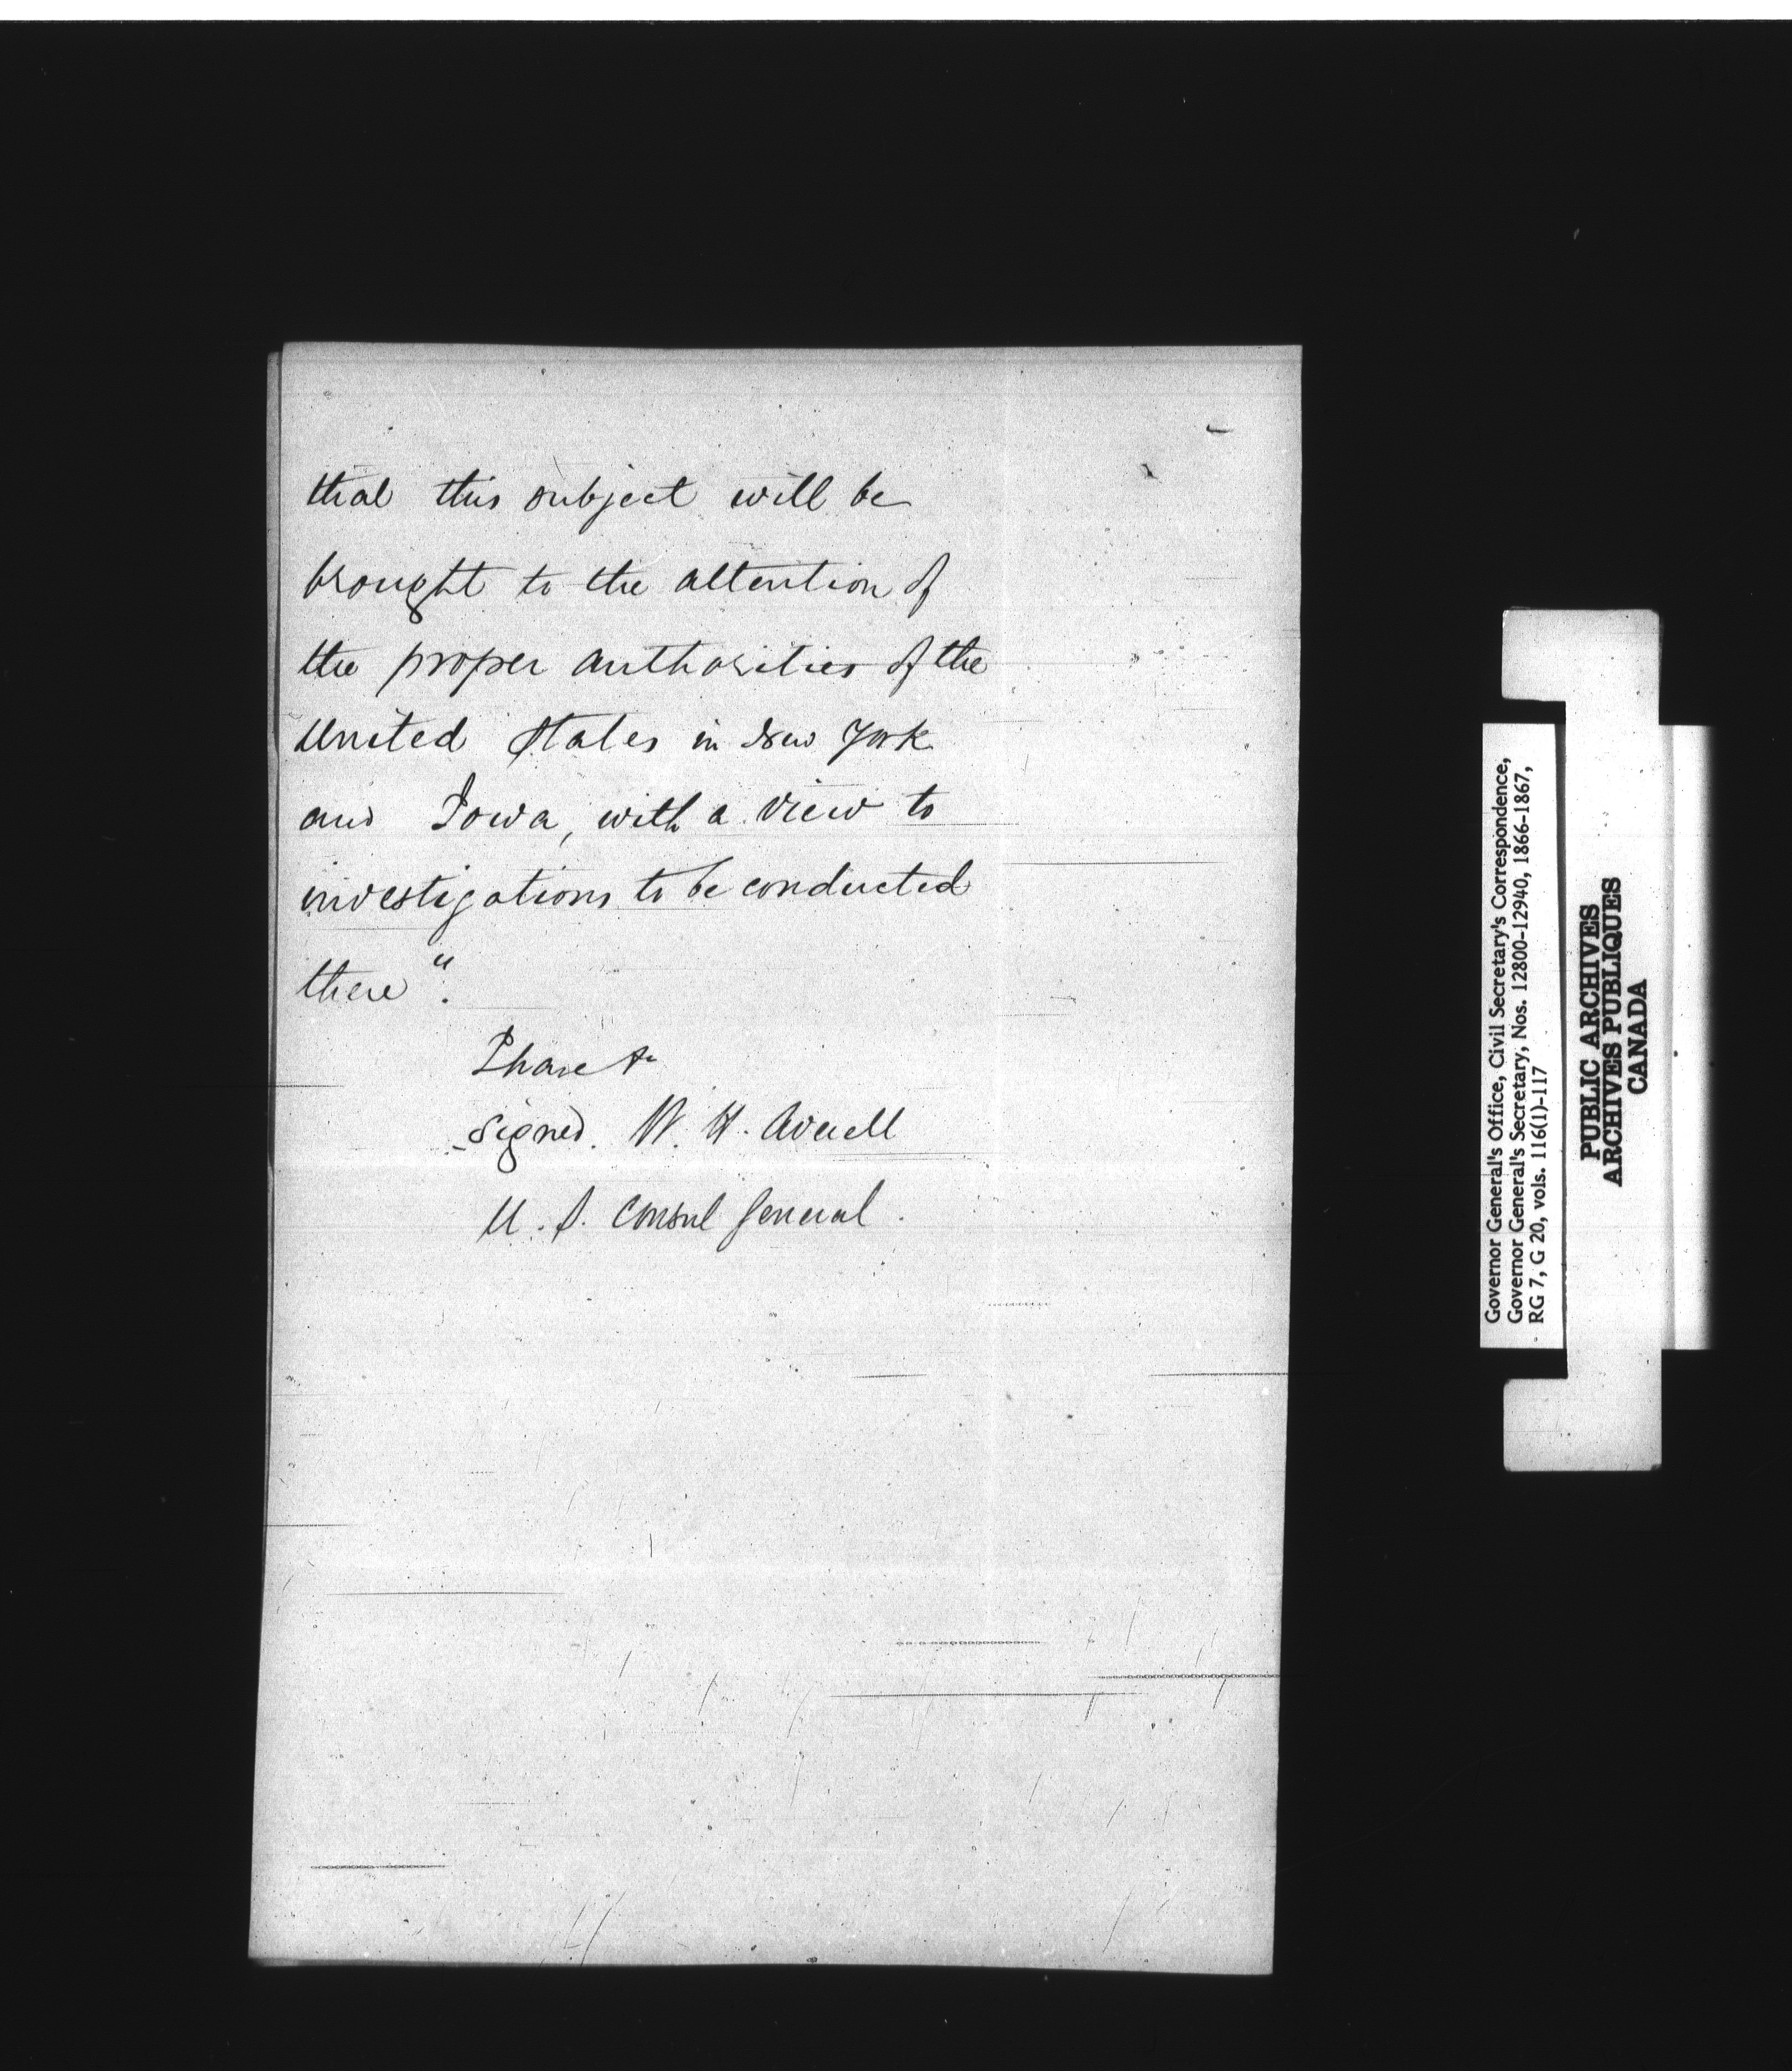 that this subject will be
brought to the attention of
the proper authorities of the
United States in New York
and Iowa, with a view to
investigations to be conducted
there".
I have &c
signed. W. H. Averell
U. S. Consul General.
Governor General's Office, Civil Secretary's Correspondence,
Governor General's Secretary, Nos. 12800-12940, 1866-1867,
RG 7, G 20, vols. 116(1)-117
PUBLIC ARCHIVES
ARCHIVES PUBLIQUES
CANADA